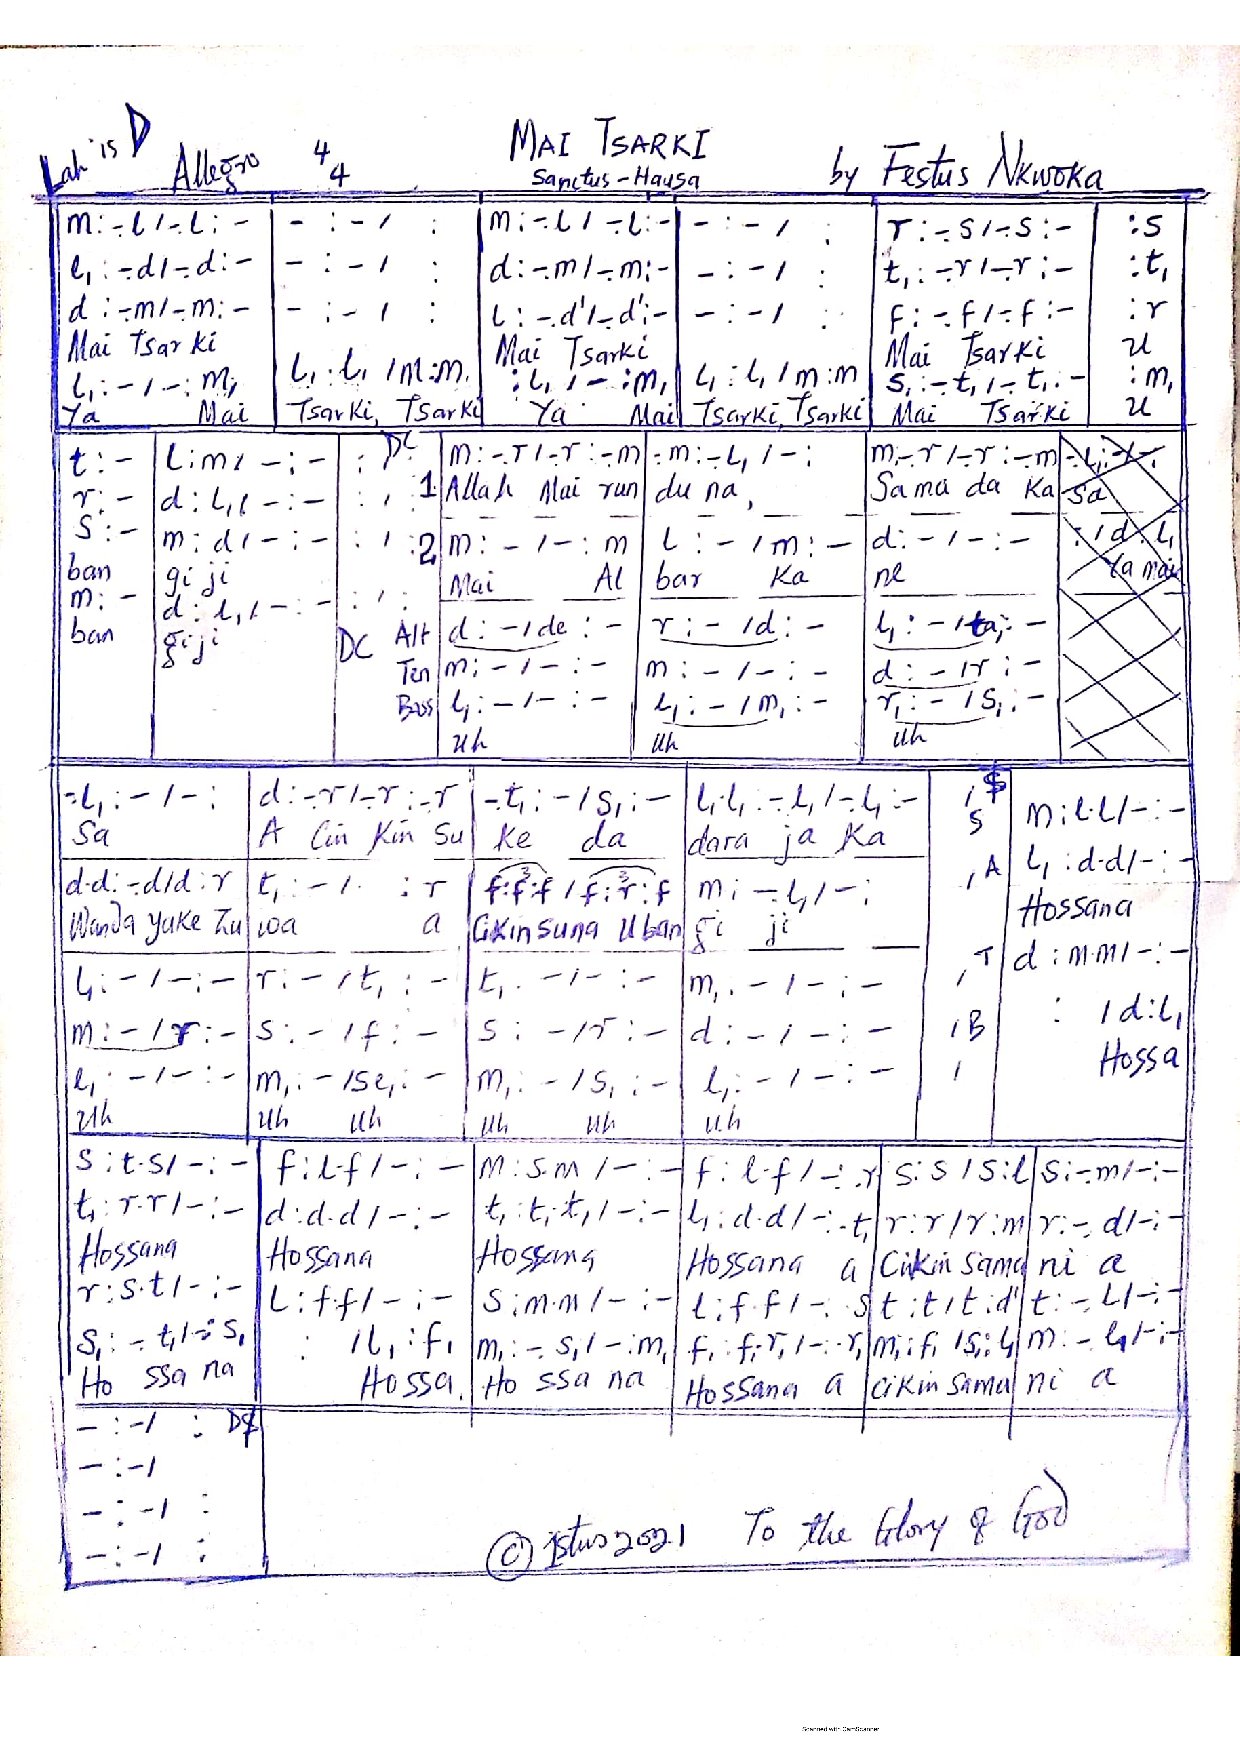 Lah is D Allegro 4/4 MAI TSARKI by Festus Nkwoka
Sanctus - Hausa
m:-.l/-.l:- | -:-/ : | m:-.l/-.l:- | -:-/ : | r:-.s/-.s:- | :s
l₁:-.d/-.d:- | -:-/ : | d:-.m/-.m:- | -:-/ : | t₁:-.r/-.r:- | :t₁
d:-.m/-.m:- | -:-/ : | l:-.d'/-.d':- | -:-/ : | f:-.f/-.f:- | :r
Mai Tsarki | Mai Tsarki | Mai Tsarki | u
l₁:-/-:m₁ | l₁:l₁/m:m | :l₁/-:m₁ | l₁:l₁/m:m | s₁:-.t₁/-.t₁:- | :m₁
Ya Mai | Tsarki, Tsarki | Ya Mai | Tsarki, Tsarki | Mai Tsarki | u
t:- | l:m/-:- | : DC | 1 m:-.r/-.r:-.m | -.m:-.l₁/-: | m:-.r/-.r:-.m
r:- | d:l₁/-:- | Allah Mai run | du na, | Sama da Ka | Sa
s:- | m:d/-:- | : / : | 2 m:-/-:m | l:-/m:- | d:-/-:- | :/d:l₁
ban | gi ji | Mai Al | bar Ka | ne | Ya mai
m:- | d:l₁/-:- | : / :
ban | gi ji | DC | Alt d:-/de:- | r:-/d:- | l₁:-/ta₁:-
Ten m:-/-:- | m:-/-:- | d:-/r:-
Bass l₁:-/-:- | l₁:-/m₁:- | r₁:-/s₁:-
Uh | Uh | Uh
-.l₁:-/-: | d:-.r/-.r:-.r | -.t₁:-/s₁:- | l₁.l₁:-.l₁/-.l₁:- | / S | m:l.l/-:-
Sa | A Cin Kin Su | ke da | dara ja Ka | l₁:d.d/-:-
d.d:-.d/d:r | t₁:-/. :r | f:f:f/f:r:f | m:-.l₁/-: | , A | Hossana
Wanda yake Zu | wa a | Cikin suna Uban | gi ji
l₁:-/-:- | r:-/t₁:- | t₁:-/-:- | m₁:-/-:- | , T | d:m.m/-:-
m:-/r:- | s:-/f:- | s:-/r:- | d:-/-:- | / B | : /d:l₁
l₁:-/-:- | m₁:-/se₁:- | m₁:-/s₁:- | l₁:-/-:- | / | Hossa
Uh | Uh Uh | Uh Uh | Uh
s:t.s/-:- | f:l.f/-:- | m:s.m/-:- | f:l.f/-:.r | s:s/s:l | s:-.m/-:-
t₁:r.r/-:- | d:d.d/-:- | t₁:t₁.t₁/-:- | l₁:d.d/-:.t₁ | r:r/r:m | r:-.d/-:-
Hossana | Hossana | Hossana | Hossana a | Cikin Sama | ni a
r:s.t/-:- | l:f.f/-:- | s:m.m/-:- | l:f.f/-:.s | t:t/t:d' | t:-.l/-:-
s₁:-.t₁/-:s₁ | : /l₁:f₁ | m₁:-.s₁/-:m₁ | f₁:f₁.r₁/-:.r₁ | m₁:f₁/s₁:l₁ | m:-.l₁/-:-
Ho ssa na | Hossa. | Ho ssa na | Hossana a | Cikin Sama | ni a
-:-/ : DS
-:-/
-:-/ :
-:-/ :
© Jstus 2021 To the Glory of God
Scanned with CamScanner